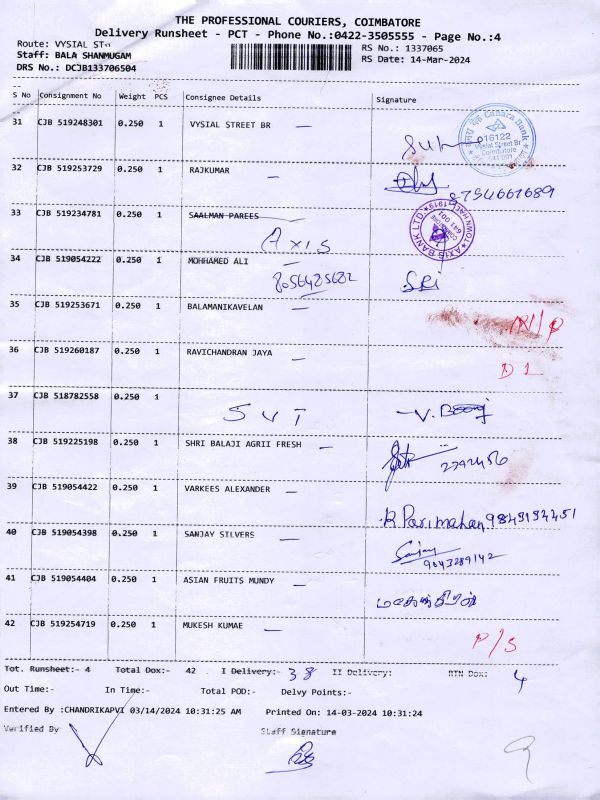 THE PROFESSIONAL COURIERS, COIMBATORE
Delivery Runsheet - PCT - Phone No.:0422-3505555 - Page No.:4
Route: VYSIAL ST
RS No.: 1337065
Staff: BALA SHANMUGAM
RS Date: 14-Mar-2024
DRS No.: DCJB133706504
S No Consignment No Weight PCS Consignee Details Signature
31 CJB 519248301 0.250 1 VYSIAL STREET BR
Canara Bank
16122
Vysial Street Br
Coimbatore
641 001
32 CJB 519253729 0.250 1 RAJKUMAR
8754661689
33 CJB 519234781 0.250 1 SAALMAN PAREES
AXIS
AXIS BANK LTD
34 CJB 519054222 0.250 1 MOHHAMED ALI
8056425682 SRi
35 CJB 519253671 0.250 1 BALAMANIKAVELAN
36 CJB 519260187 0.250 1 RAVICHANDRAN JAYA
D L
37 CJB 518782558 0.250 1
SVT
38 CJB 519225198 0.250 1 SHRI BALAJI AGRII FRESH
2792456
39 CJB 519054422 0.250 1 VARKEES ALEXANDER
40 CJB 519054398 0.250 1 SANJAY SILVERS
Sanjay
9043289142
41 CJB 519054404 0.250 1 ASIAN FRUITS MUNDY
42 CJB 519254719 0.250 1 MUKESH KUMAE
P/S
Tot. Runsheet:- 4 Total Dox:- 42 I Delivery:- 38 II Delivery: RTN Dox: 4
Out Time:- In Time:- Total POD:- Delvy Points:-
Entered By :CHANDRIKAPVI 03/14/2024 10:31:25 AM Printed On: 14-03-2024 10:31:24
Verified By Staff Signature